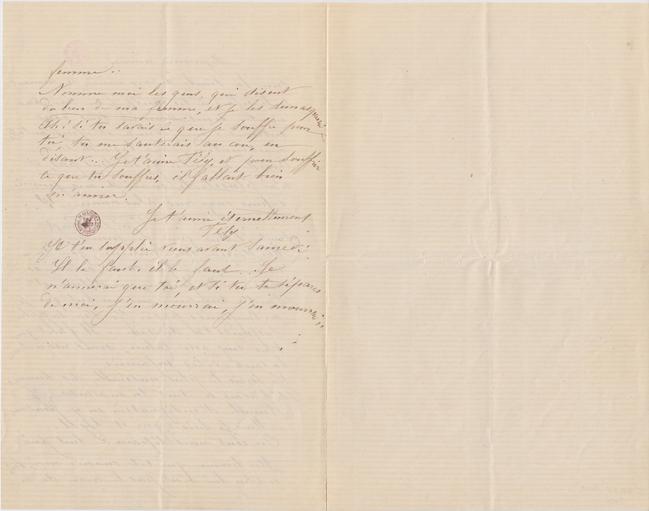 femme..
Nomme moi les gens, qui disent
du bien de ma femme, et je les
Ah! si tu savais ce que je souffre pour
toi, tu me sauterais au cou, en
disant.. Je t'aime Téfy, et pour souffrir
ce que tu souffres, il fallait bien
m'aimer.
Je t'aime éternellement
Téfy
Je t'en supplie viens avant Samedi
Il le faut. il le faut. Je
n'aimerai que toi, et si tu te sépares
de moi, j'en mourrai, j'en mourrai